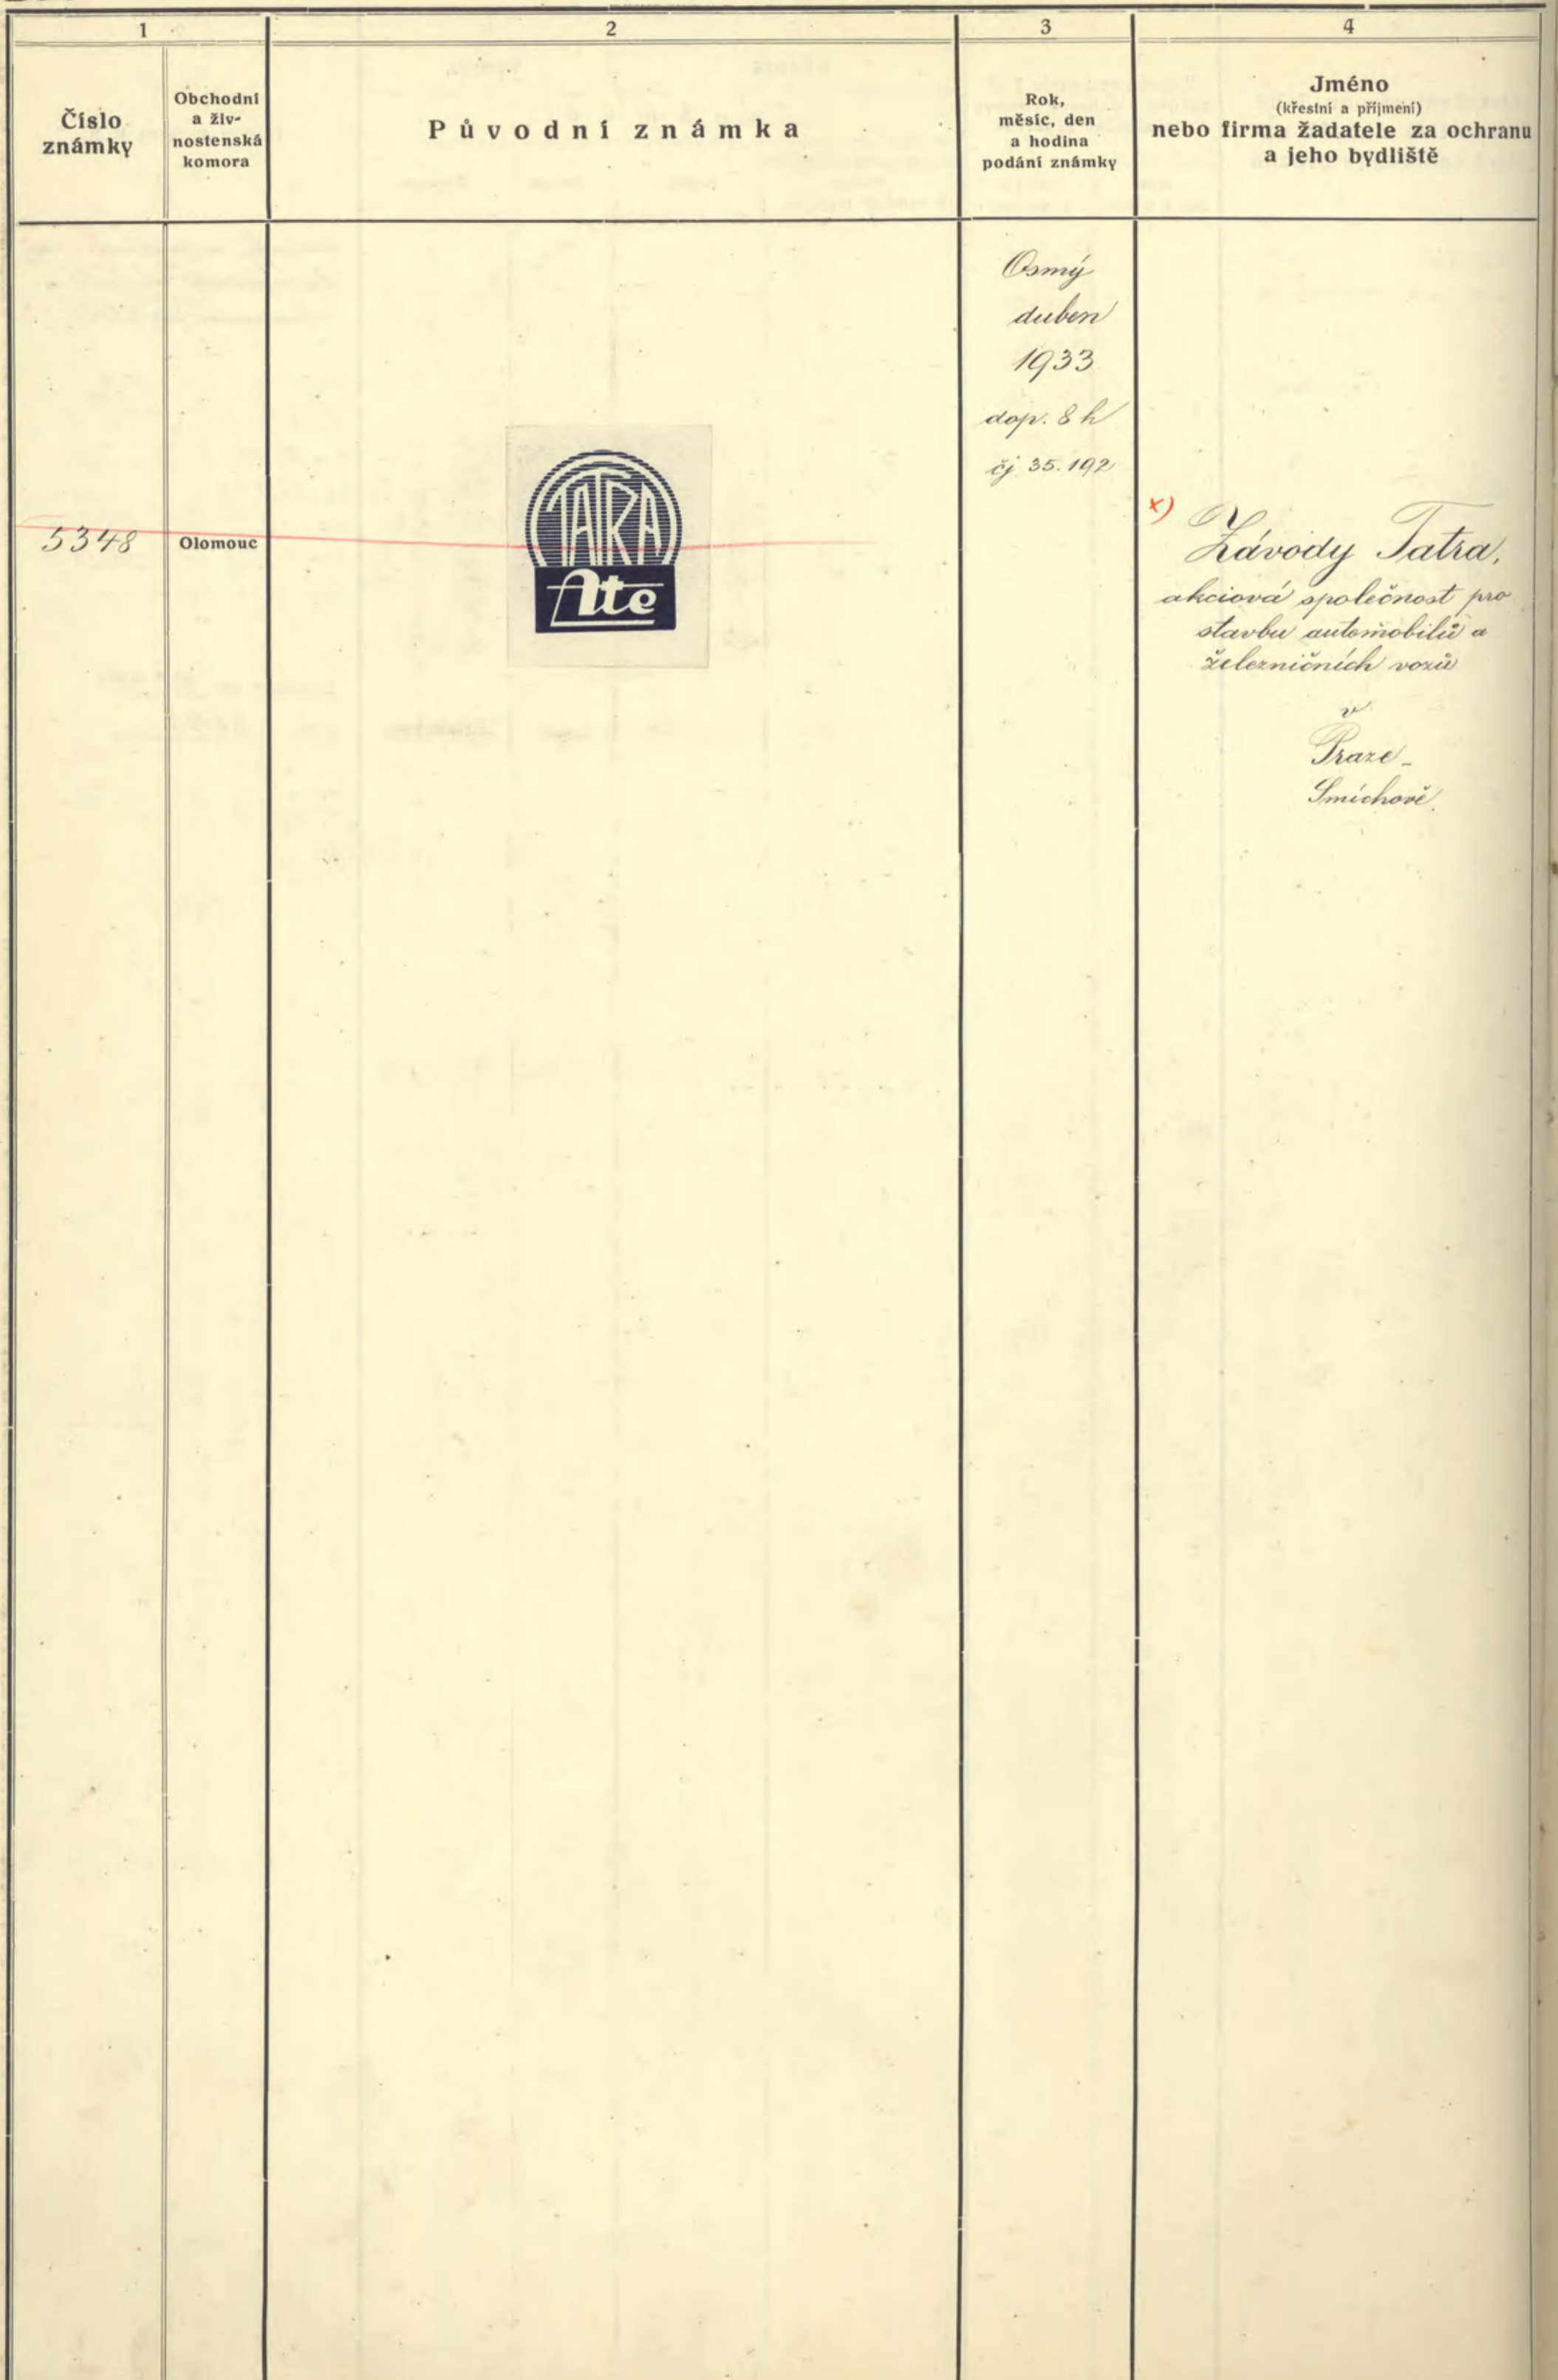 1
2
3
4
Číslo
známky
Obchodní
a živ-
nostenská
komora
Původní známka
Rok,
měsíc, den
a hodina
podání známky
Jméno
(křestní a příjmení)
nebo firma žadatele za ochranu
a jeho bydliště
Osmý
duben
1933
dop. 8 h
čj. 35.192
5348
Olomouc
TATRA
Ate
x)
Závody Tatra,
akciová společnost pro
stavbu automobilů a
železničních vozů
v
Praze-
Smíchově.